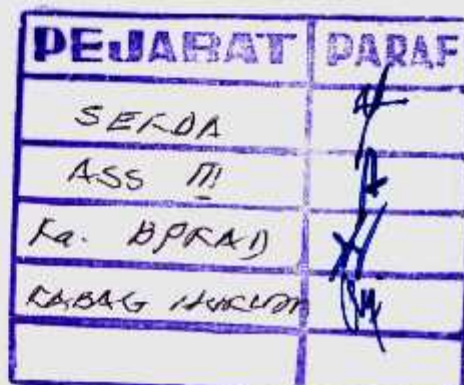 PEJABAT PARAF
SEKDA
ASS III
Ka. BPKAD
KABAG HUKUM